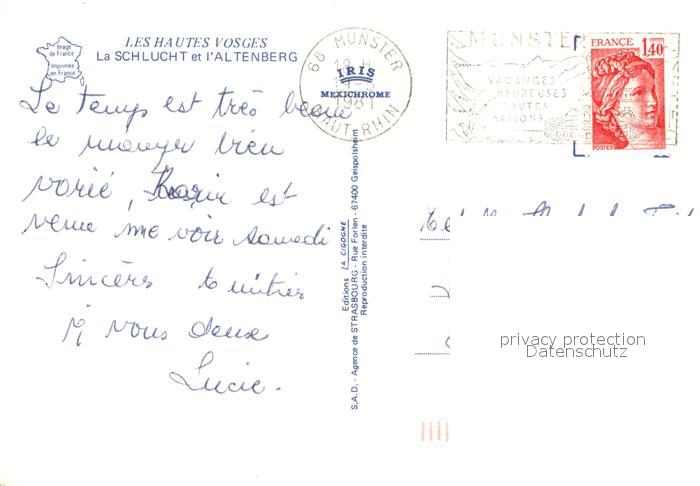 Image
de France
Imprimée
en France
LES HAUTES VOSGES
La SCHLUCHT et l'ALTENBERG
Le temps est très beau
le manger bien
varié, Karin est
venue me voir samedi
Sincères amitiés
à vous deux
Lucie.
68 MUNSTER
18 H
1981
HAUT-RHIN
IRIS
MEXICHROME
Editions LA CIGOGNE
S.A.D. - Agence de STRASBOURG - Rue Forlen - 67400 Geispolsheim
Reproduction interdite
MUNSTER
VACANCES
HEUREUSES
TOUTES
SAISONS
FRANCE
1,40
POSTES
privacy protection
Datenschutz